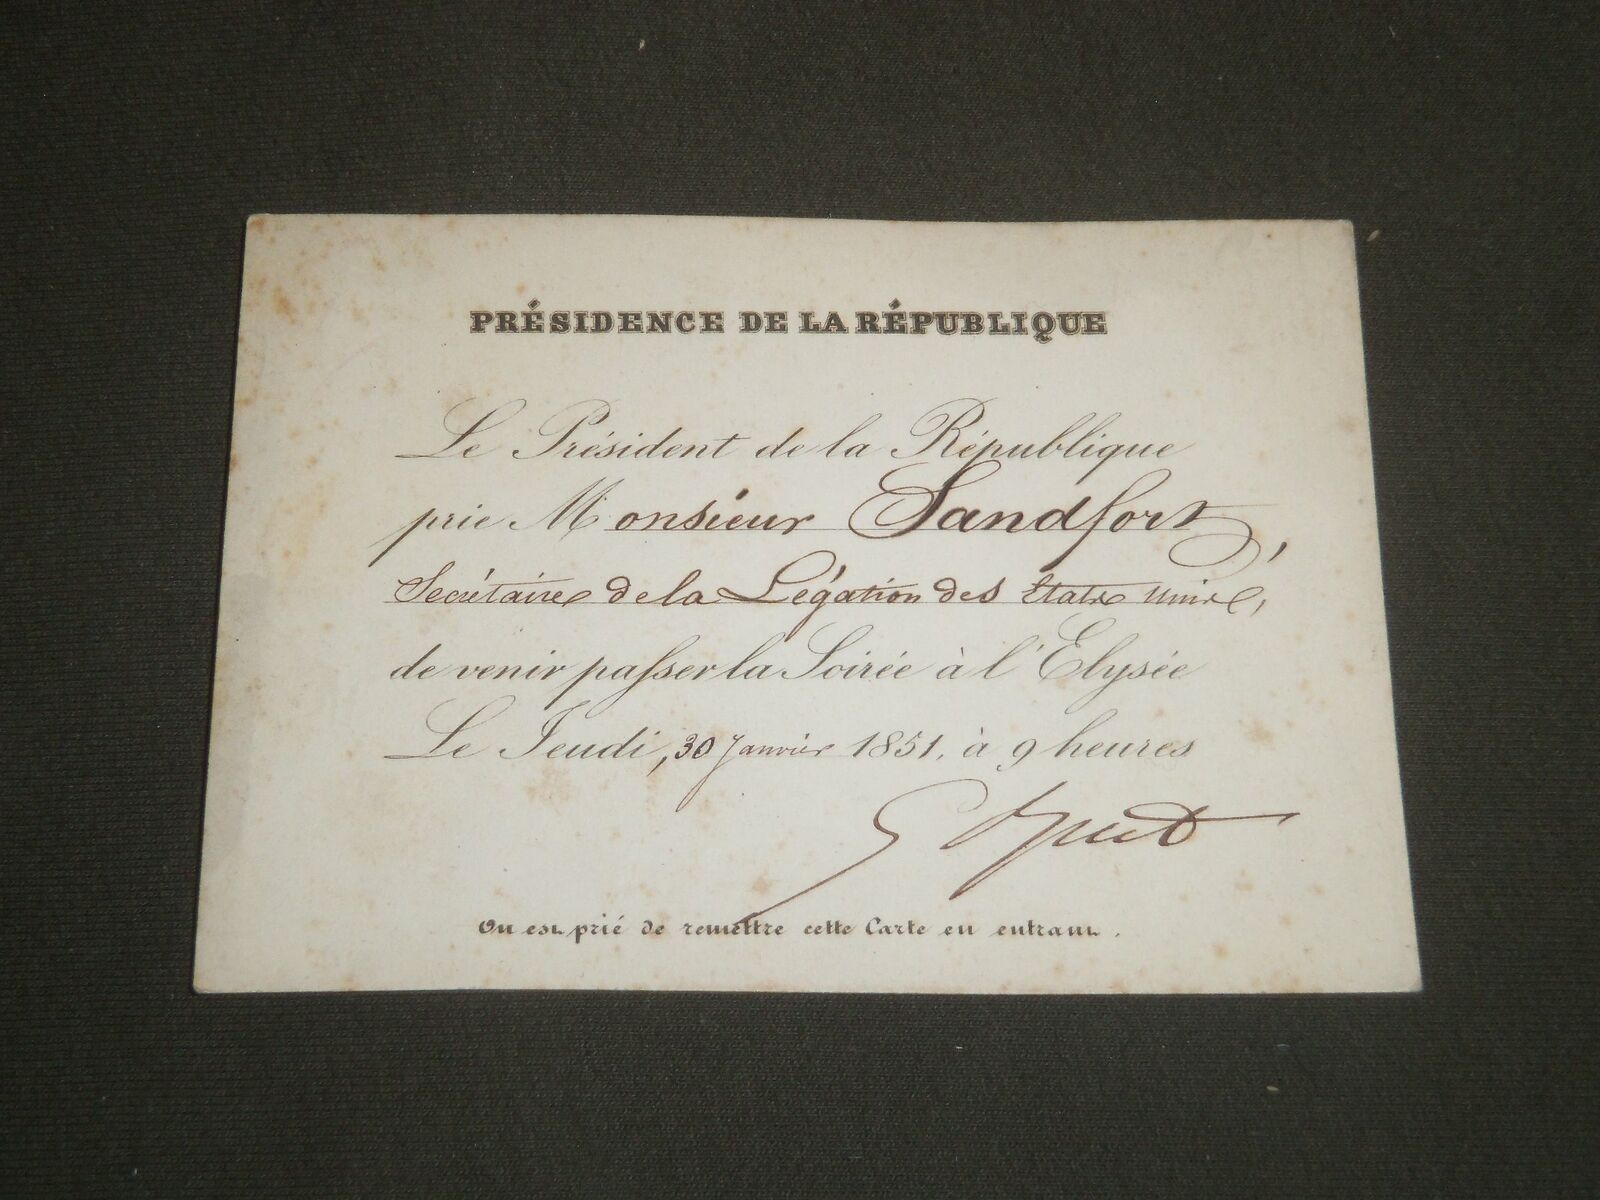 PRÉSIDENCE DE LA RÉPUBLIQUE
Le Président de la République
prie Monsieur Sandfort,
Secrétaire de la Légation des Etats Unis,
de venir passer la Soirée à l'Elysée
Le Jeudi, 30 Janvier 1851, à 9 heures
On est prié de remettre cette Carte en entrant.